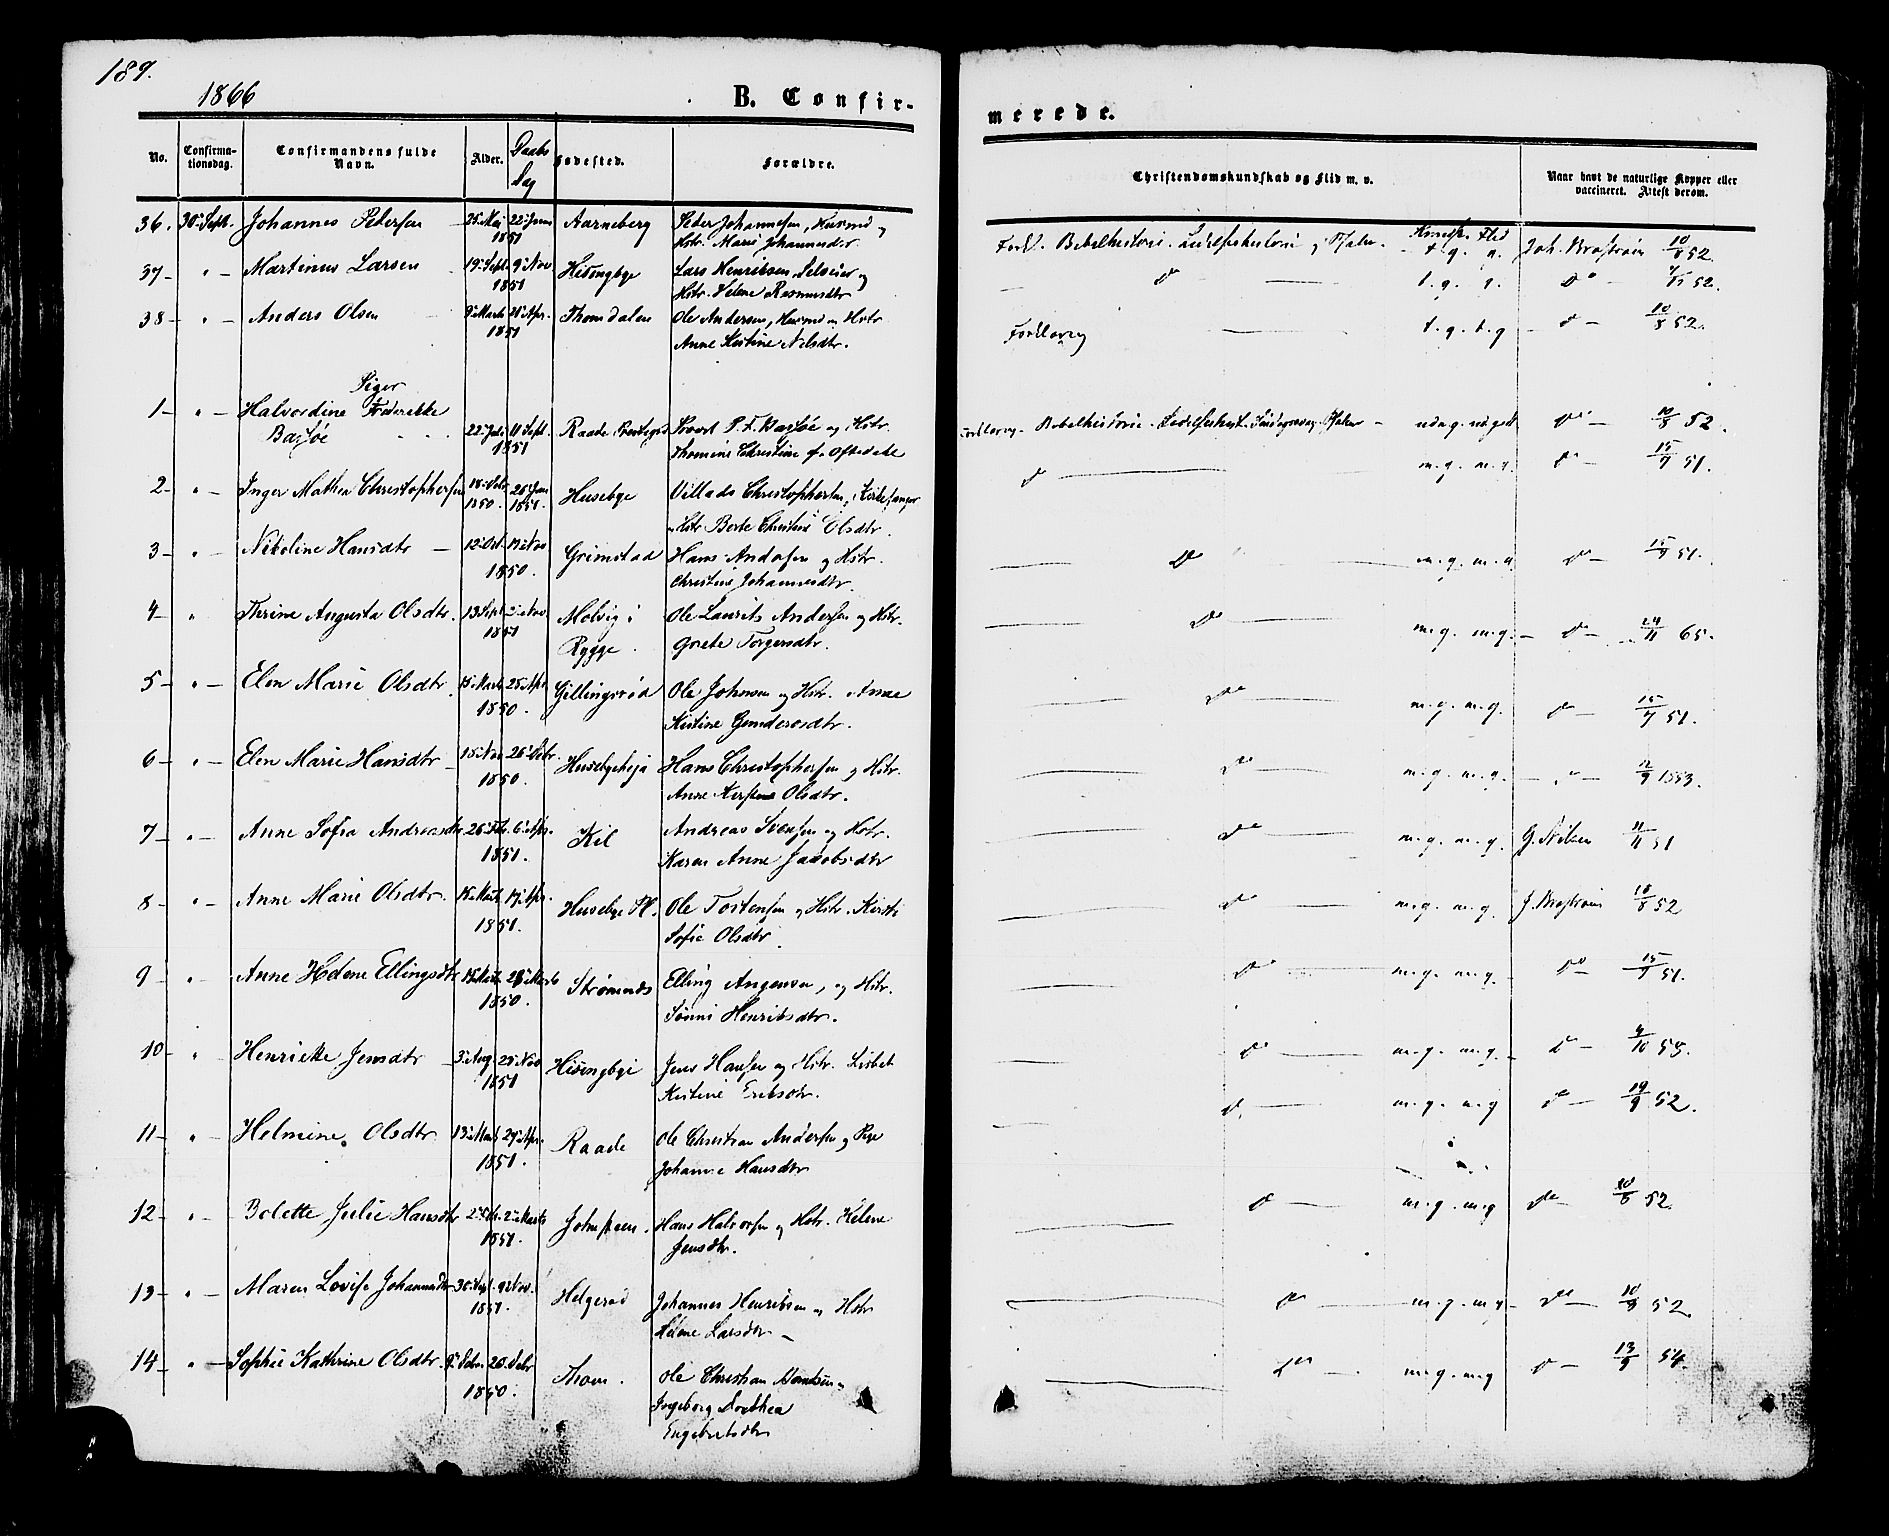 189.
1866
B. Confir-
merede.
No. Confirma-tionsdag. Confirmandens fulde Navn. Alder. Daabs Dag Fødested. Forældre.
Christendomskundskab og Flid m. v. Naar havt de naturlige Kopper eller vaccineret. Attest derom.
Kundsk. Flid
36. 30 Sept. Johannes Petersen 25 Mai 22 Juni 1851 Aarneberg Peder Johannesen, Husmd og
Hstr. Marie Johannesdtr Forkl. Bibelhistorie. og Psalm. t. g. g. Joh. 10/8 52.
37 - " - Martinus Larsen 19 Sept. 9 Nov 1851 Hisingbye Lars Henriksen, Selveier og
Hstr. Helene Rasmusdtr do t. g. g. do 52.
38 - " - Anders Olsen 9 Marts 21 Apr. 1851 Thomdalen Ole Andersen, Husmd og Hstr.
Anne Kistine Nilsdtr. Forklaring t. g. t. g - do - 10/8 52.
Piger
1 - " - Halvordine Frederikke
Bassøe 22 Juli 11 Sept. 1851 Raade Prestegrd P. F. Bassøe og Hstr.
Thomine Christine f. Oftedahl Forklaring. Bibelhistorie. Psalm - udm. g. udm. godt do - 10/8 52.
2 - " - Inger Mathea Christophersen 18 Octr. 1850. 26 Jan 1851. Husebye Villads Christophersen, Kirkesanger
og Hstr Berte Christine Olsdtr. do m. g. m. g. do - 15/7 51.
3 - " - Nikoline Hansdtr - 12 Oct. 17 Nov 1850. Grimstad Hans Andersen og Hstr.
Christine Johannesdtr. do m. g. m. g. do - 15/7 51.
4 - " Thrine Augusta Olsdtr. 13 Sept 2 Nov. 1851 Molvig i
Rygge. Ole Laurits Andersen og Hstr.
Grete Torgersdtr. do m. g. m. g. - do - 24/11 65.
5 - " - Elen Marie Olsdtr. 15 Marts 25 Apr 1850. Gillingsrød Ole Johnsen og Hstr. Anne
Kistine Gundersdtr. do m. g. m. g. do - 15/7 51.
6 - " - Elen Marie Hansdtr 15 Nov. 26 Debr. 1850. Husebyehøja Hans Christophersen og Hstr.
Anne Kerstine Olsdtr. do m. g. m. g. - " - 12/9 1853.
7 - " - Anne Sofia Andreasdtr 26 Feb. 6 Apr. 1851. Kil Andreas Svensen og Hstr.
Karen Anne Jacobsdtr do m. g. m. g. G. Nilsen 11/11 51
8 - " - Anne Marie Olsdtr. 15 Marts 19 Apr. 1851. Husebye Pl. Ole Torstensen og Hstr. Kirsti
Sofie Olsdtr. do m. g. m. g. 10/8 52
9 - " Anne Helene Ellingsdtr 15 Marts 28 Marts 1850. Strømnæs Elling Angensen, og Hstr.
Sønni Henriksdtr. do m. g. m. g. - do - 15/7 51.
10 - " Henrikke Jensdtr 3 Aug. 25 Nov 1851 Hisingbye Jens Hansen og Hstr. Lisbet
Kistine Eriksdtr. do m. g. m. g. - do - 53.
11 - " - Helmine Olsdtr 13 Marts 29 Apr. 1851. Raade Ole Christian Andersen og Pige
Johanne Hansdtr do m. g. m. g do - 19/9 52.
12 - " - Bolette Julie Hansdtr 2 Feb. 2 Marts 1851. Hans Halvorsen og Hstr. Helene
Jensdtr. do m. g. m. g do - 10/8 52.
13 - " - Maren Lovise Johannesdtr 30 Sept. 9 Nov. 1851. Helgerød Johannes Henriksen og Hstr
Helene Larsdtr - do m. g. m. g - do - 10/9 52.
14 - " - Sophie Kathrine Olsdtr. 26 Debr 1850. Thom. Ole Christian og
Ingeborg Dorthea
Engebretsdtr do m. g. m. g do - 13/5 54.